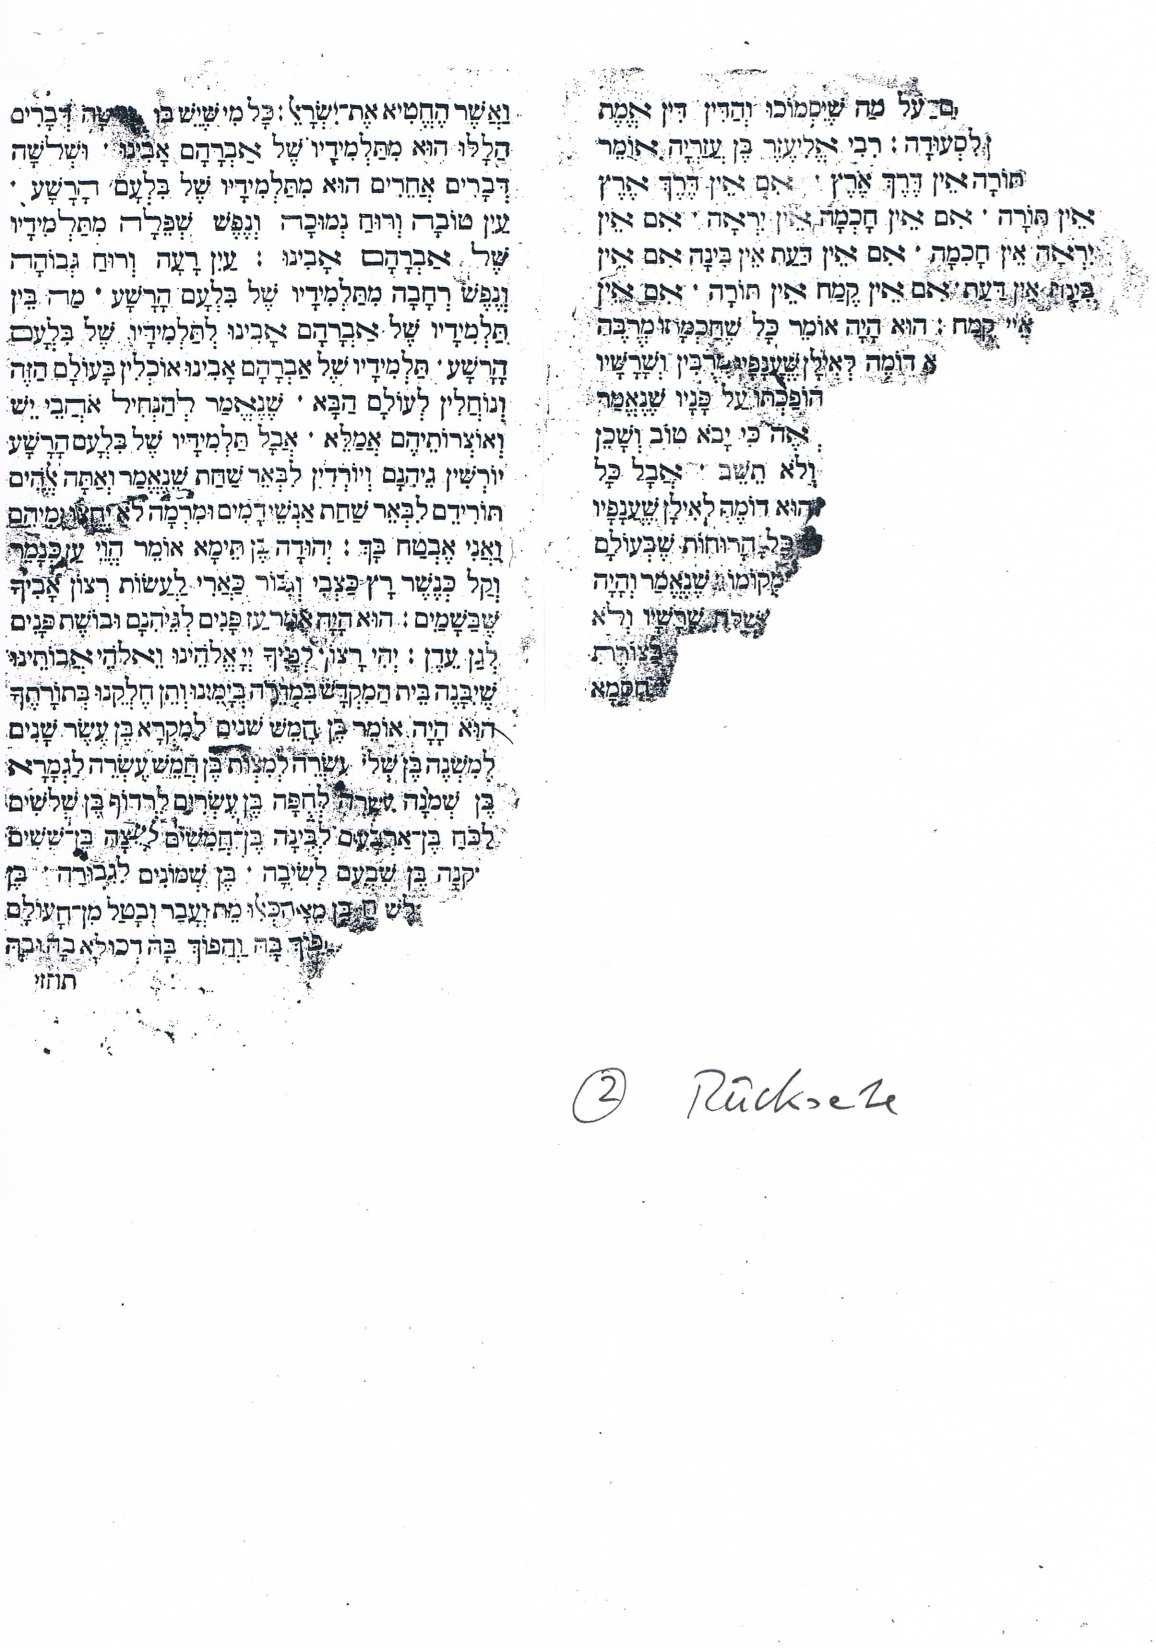 ם עַל מַה שֶׁיִּסְמוֹכוּ וְהַדִּין דִּין אֱמֶת
לִסְעוּדָה : רַבִּי אֱלִיעֶזֶר בֶּן עֲזַרְיָה אוֹמֵר
תּוֹרָה אֵין דֶּרֶךְ אֶרֶץ · אִם אֵין דֶּרֶךְ אֶרֶץ
אֵין תּוֹרָה · אִם אֵין חָכְמָה אֵין יִרְאָה · אִם אֵין
יִרְאָה אֵין חָכְמָה · אִם אֵין דַּעַת אֵין בִּינָה אִם אֵין
בִּינָה אֵין דַּעַת · אִם אֵין קֶמַח אֵין תּוֹרָה · אִם אֵין
קֶמַח : הוּא הָיָה אוֹמֵר כָּל שֶׁחָכְמָתוֹ מְרֻבָּה
א דוֹמֶה לְאִילָן שֶׁעֲנָפָיו מְרֻבִּין וְשָׁרָשָׁיו
הוֹפַכְתּוֹ עַל פָּנָיו שֶׁנֶּאֱמַר
אֶה כִּי יָבֹא טוֹב וְשָׁכֵן
וְלֹא תֵשֵׁב · אֲבָל כָּל
הוּא דוֹמֶה לְאִילָן שֶׁעֲנָפָיו
כָּל הָרוּחוֹת שֶׁבָּעוֹלָם
מְקוֹמוֹ שֶׁנֶּאֱמַר וְהָיָה
שָׁרָשָׁיו וְלֹא
בַּצּוֹרֶת
חִסְמָא
וַאֲשֶׁר הֶחֱטִיא אֶת־יִשְׂרָאֵל : כָּל מִי שֶׁיֵּשׁ בּוֹ דְּבָרִים
הַלָּלוּ הוּא מִתַּלְמִידָיו שֶׁל אַבְרָהָם אָבִינוּ · וּשְׁלֹשָׁה
דְּבָרִים אֲחֵרִים הוּא מִתַּלְמִידָיו שֶׁל בִּלְעָם הָרָשָׁע ·
עַיִן טוֹבָה וְרוּחַ נְמוּכָה וְנֶפֶשׁ שְׁפֵלָה מִתַּלְמִידָיו
שֶׁל אַבְרָהָם אָבִינוּ : עַיִן רָעָה וְרוּחַ גְּבוֹהָה
וְנֶפֶשׁ רְחָבָה מִתַּלְמִידָיו שֶׁל בִּלְעָם הָרָשָׁע · מַה בֵּין
תַּלְמִידָיו שֶׁל אַבְרָהָם אָבִינוּ לְתַלְמִידָיו שֶׁל בִּלְעָם
הָרָשָׁע · תַּלְמִידָיו שֶׁל אַבְרָהָם אָבִינוּ אוֹכְלִין בָּעוֹלָם הַזֶּה
וְנוֹחֲלִין לְעוֹלָם הַבָּא · שֶׁנֶּאֱמַר לְהַנְחִיל אֹהֲבַי יֵשׁ
וְאוֹצְרוֹתֵיהֶם אֲמַלֵּא · אֲבָל תַּלְמִידָיו שֶׁל בִּלְעָם הָרָשָׁע
יוֹרְשִׁין גֵּיהִנָּם וְיוֹרְדִין לִבְאֵר שַׁחַת שֶׁנֶּאֱמַר וְאַתָּה אֱלֹהִים
תּוֹרִידֵם לִבְאֵר שַׁחַת אַנְשֵׁי דָמִים וּמִרְמָה לֹא יֶחֱצוּ יְמֵיהֶם
וַאֲנִי אֶבְטַח בָּךְ : יְהוּדָה בֶּן תֵּימָא אוֹמֵר הֱוֵי עַז כַּנָּמֵר
וְקַל כַּנֶּשֶׁר רָץ כַּצְּבִי וְגִבּוֹר כָּאֲרִי לַעֲשׂוֹת רְצוֹן אָבִיךָ
שֶׁבַּשָּׁמַיִם : הוּא הָיָה אוֹמֵר עַז פָּנִים לְגֵיהִנָּם וּבוֹשֶׁת פָּנִים
לְגַן עֵדֶן : יְהִי רָצוֹן לְפָנֶיךָ יְיָ אֱלֹהֵינוּ וֵאלֹהֵי אֲבוֹתֵינוּ
שֶׁיִּבָּנֶה בֵּית הַמִּקְדָּשׁ בִּמְהֵרָה בְיָמֵינוּ וְתֵן חֶלְקֵנוּ בְּתוֹרָתֶךָ
הוּא הָיָה אוֹמֵר בֶּן חָמֵשׁ שָׁנִים לַמִּקְרָא בֶּן עֶשֶׂר שָׁנִים
לַמִּשְׁנָה בֶּן שְׁלֹשׁ עֶשְׂרֵה לַמִּצְוֹת בֶּן חֲמֵשׁ עֶשְׂרֵה לַגְּמָרָא
בֶּן שְׁמֹנָה עֶשְׂרֵה לְחֻפָּה בֶּן עֶשְׂרִים לִרְדּוֹף בֶּן שְׁלֹשִׁים
לַכֹּחַ בֶּן־אַרְבָּעִים לַבִּינָה בֶּן־חֲמִשִּׁים לְעֵצָה בֶּן־שִׁשִּׁים
זִקְנָה בֶּן שִׁבְעִים לְשֵׂיבָה · בֶּן שְׁמוֹנִים לִגְבוּרָה · בֶּן
לָשׁוּחַ בֶּן מֵאָה כְּאִלּוּ מֵת וְעָבַר וּבָטַל מִן־הָעוֹלָם
בָּהּ וַהֲפוֹךְ בָּהּ דְכוּלָּא בָהּ וּבָהּ
תחזי
② Rückseite